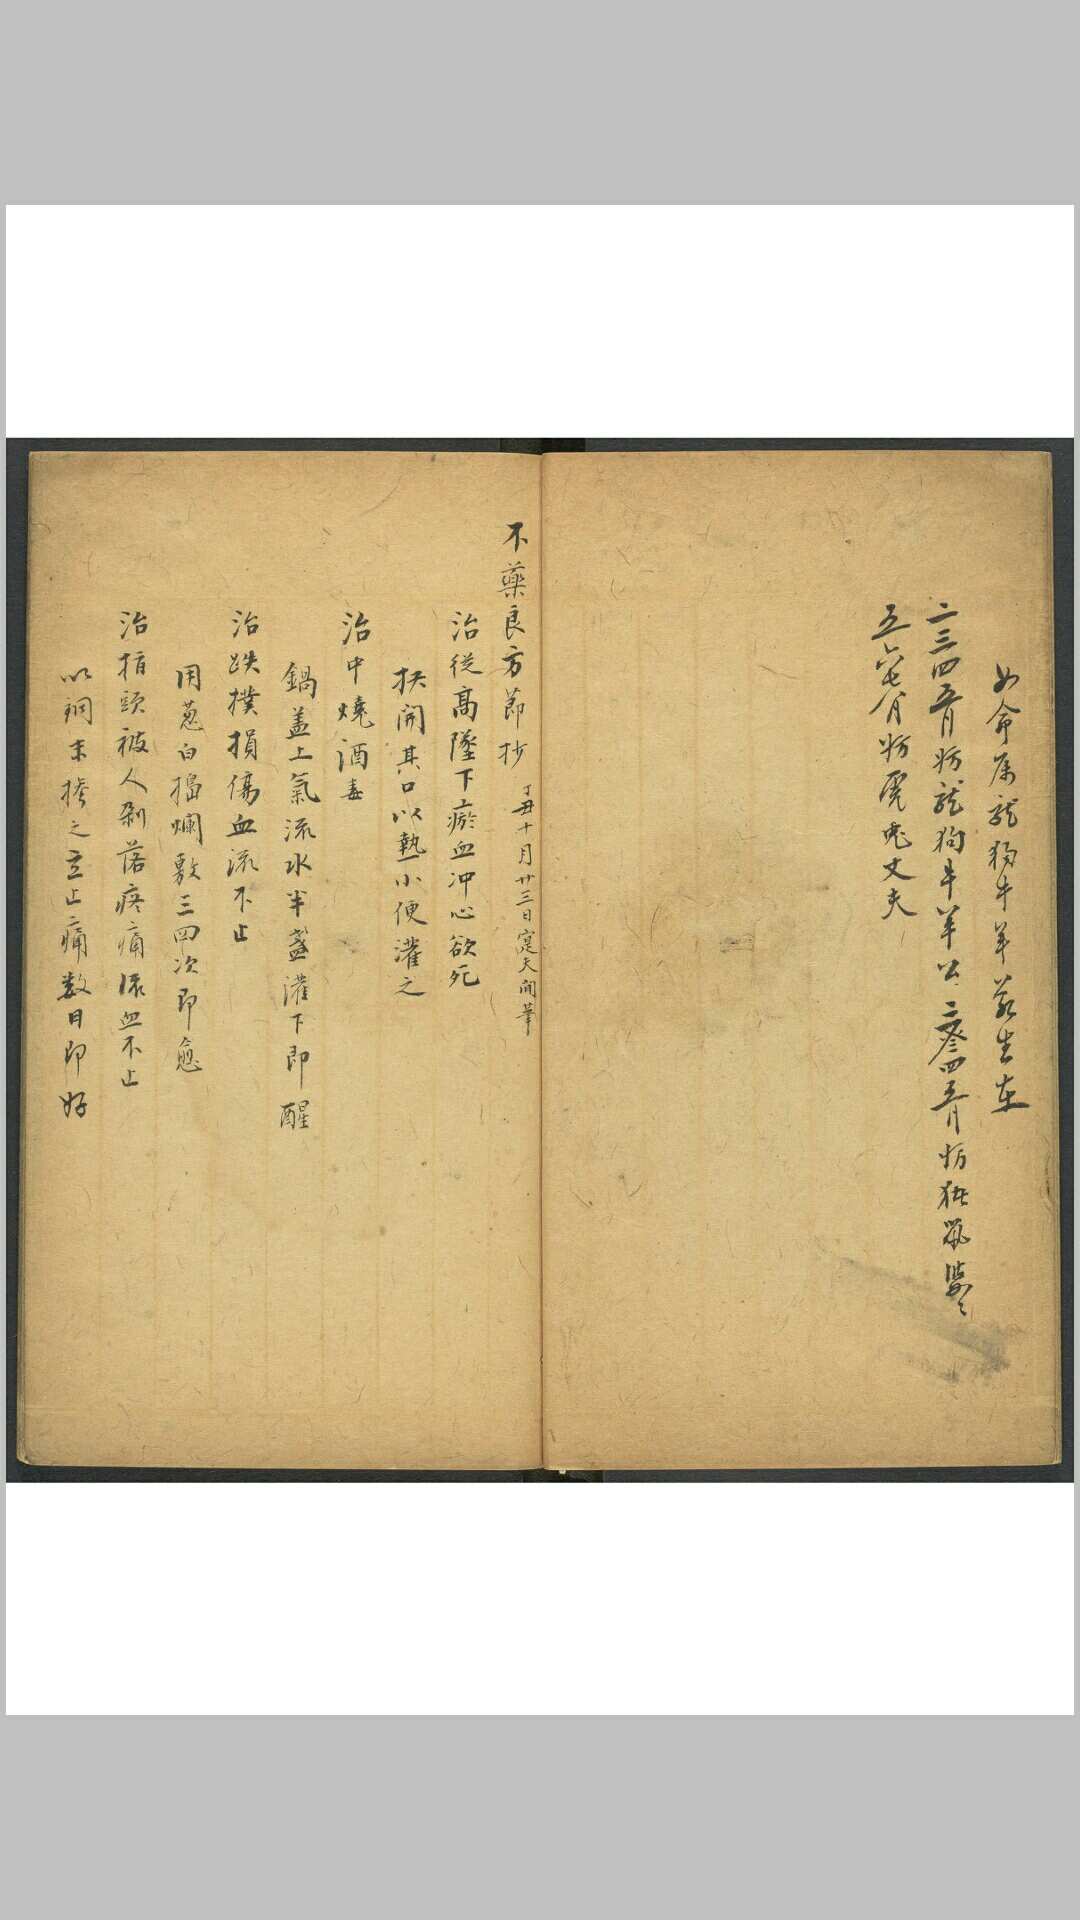 女命屬龍狗牛羊若生在
二三四五月妨龍狗牛羊公 二三四五月妨猪鼠
五六七八月妨虎兔丈夫
不藥良方節抄 丁丑十月廿三日寔夫開筆
治從高墜下瘀血冲心欲死
扶開其口以熱小便灌之
治中燒酒毒
鍋盖上氣流水半盞灌下即醒
治跌撲損傷血流不止
用葱白搗爛敷三四次即愈
治指頭被人剁落疼痛流血不止
以銅末摻之立止痛数日即好